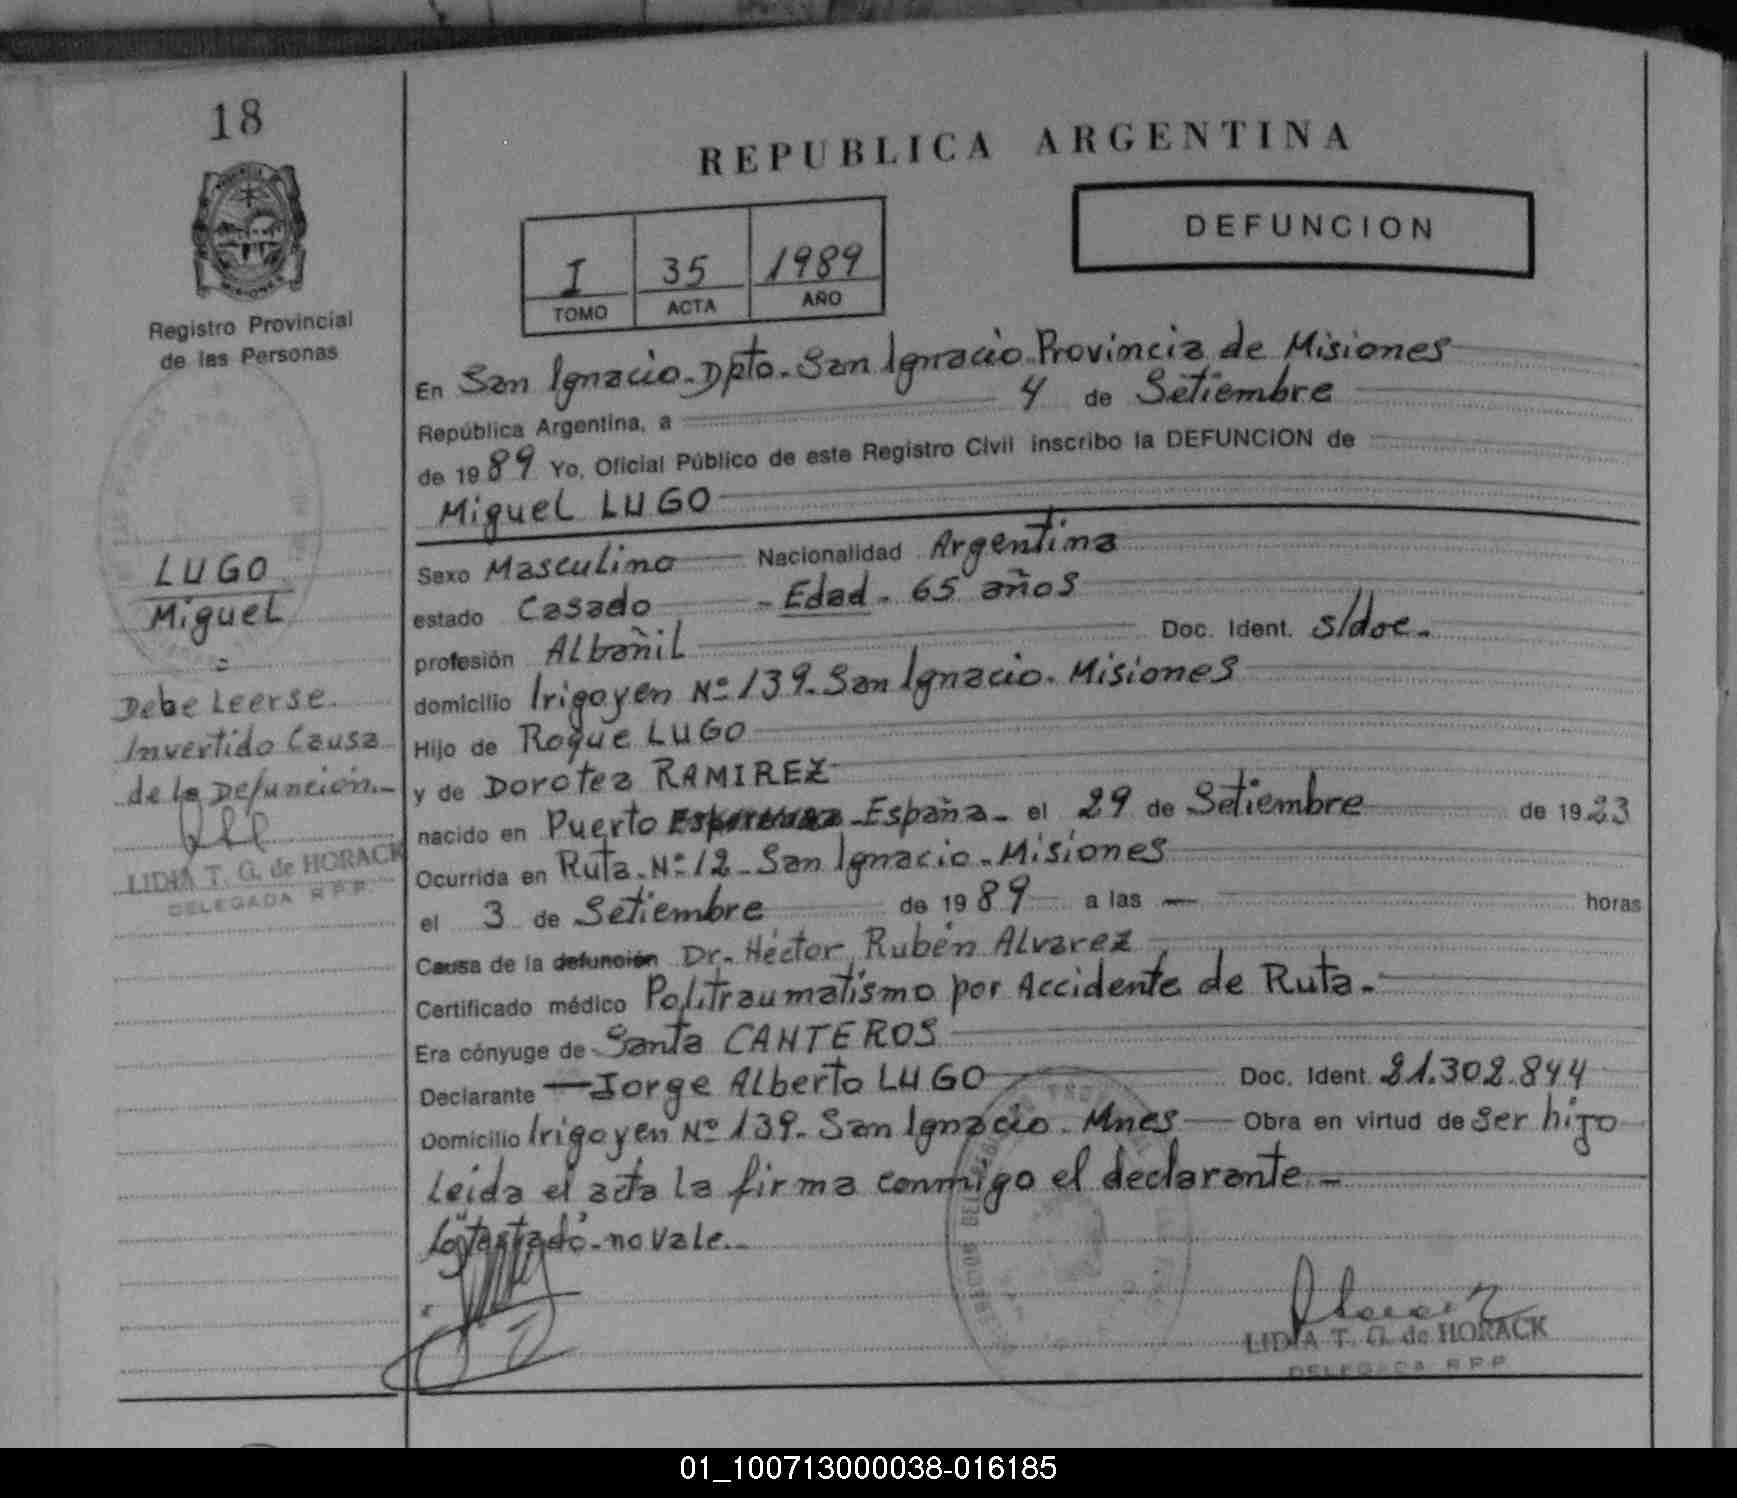 18
REPUBLICA ARGENTINA
DEFUNCION
I 35 1989
TOMO ACTA AÑO
Registro Provincial
de las Personas
En San Ignacio-Dpto-San Ignacio Provincia de Misiones
República Argentina, a 4 de Setiembre
de 1989 Yo, Oficial Público de este Registro Civil inscribo la DEFUNCION de
Miguel LUGO
LUGO
Miguel
Debe Leerse
Invertido Causa
de la Defunción.-
LIDIA T. G. de HORACK
DELEGADA R P P
Sexo Masculino Nacionalidad Argentina
estado Casado - Edad - 65 años
profesión Albañil Doc. Ident. s/doc.
domicilio Irigoyen Nº 139-San Ignacio. Misiones
Hijo de Roque LUGO
y de Dorotea RAMIREZ
nacido en Puerto España- el 29 de Setiembre de 1923
Ocurrida en Ruta-Nº 12-San Ignacio-Misiones
el 3 de Setiembre de 1989 a las — horas
Causa de la defunción Dr. Héctor Rubén Alvarez
Certificado médico Politraumatismo por Accidente de Ruta.-
Era cónyuge de Santa CANTEROS
Declarante —Jorge Alberto LUGO Doc. Ident. 21.302.844
Domicilio Irigoyen Nº 139-San Ignacio. Mnes— Obra en virtud de ser hijo
Leida el acta la firma conmigo el declarante.-
Lo "testado" no vale.-
LIDIA T. G. de HORACK
DELEGADA R P P
01_100713000038-016185